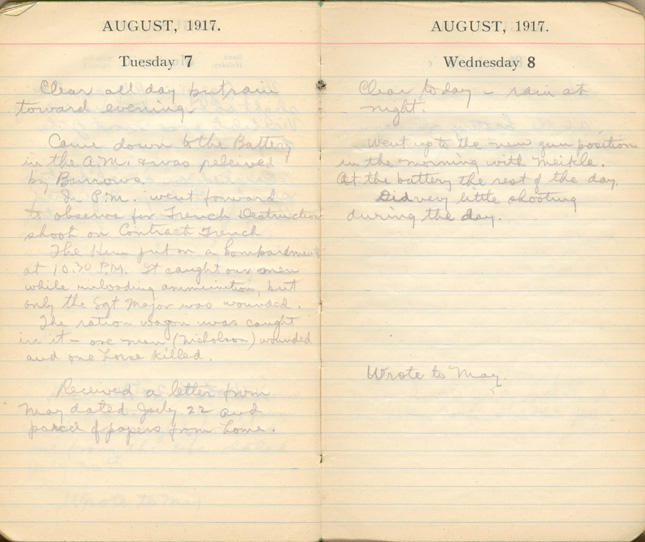 AUGUST, 1917.
Tuesday 7
Clear all day but rain
toward evening
Came down to the Battery
in the A.M. & was relieved
by Burrows.
In P.M. went forward
to observe for Trench Destruction
shoot on Contract Trench
The Huns put on a bombardment
at 10.30 P.M. It caught our men
while unloading ammunition, but
only the Sgt Major was wounded.
The ration wagon was caught
in it - one man (Nicholson) wounded
and one horse killed.
Received a letter from
May dated July 22 and
parcel of papers from home.
AUGUST, 1917.
Wednesday 8
Clear today - rain at
night.
Went up to the new gun position
in the morning with Meikle.
At the battery the rest of the day.
Did very little shooting
during the day.
Wrote to May